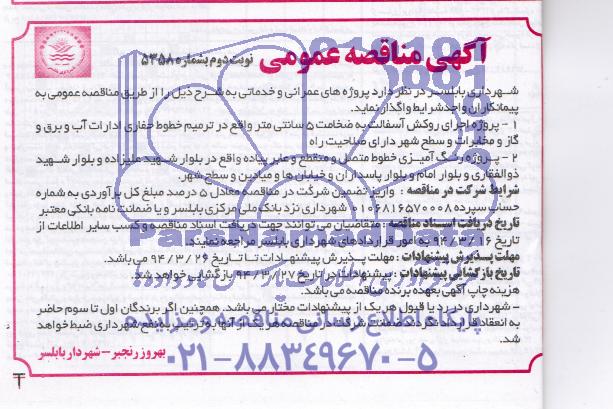 آگهی مناقصه عمومی نوبت دوم بشماره ۵۳۵۸
شهرداری بابلسر در نظر دارد پروژه های عمرانی و خدماتی به شرح ذیل را از طریق مناقصه عمومی به
پیمانکاران واجد شرایط واگذار نماید.
۱ - پروژه اجرای روکش آسفالت به ضخامت ۵ سانتی متر واقع در ترمیم خطوط حفاری ادارات آب و برق و
گاز و مخابرات و سطح شهر دارای صلاحیت راه
۲ - پروژه رنگ آمیزی خطوط متصل و منقطع و عابر پیاده واقع در بلوار شهید علیزاده و بلوار شهید
ذوالفقاری و بلوار امام و بلوار پاسداران و خیابان ها و میادین و سطح شهر.
شرایط شرکت در مناقصه : واریز تضمین شرکت در مناقصه معادل ۵ درصد مبلغ کل برآوردی به شماره
حساب سپرده ۰۱۰۶۸۱۶۵۷۰۰۰۸ شهرداری نزد بانک ملی مرکزی بابلسر و یا ضمانت نامه بانکی معتبر
تاریخ دریافت اسناد مناقصه : متقاضیان می توانند جهت دریافت اسناد مناقصه و کسب سایر اطلاعات از
تاریخ ۹۴/۳/۱۶ به امور قراردادهای شهرداری بابلسر مراجعه نمایند.
مهلت پذیرش پیشنهادات : مهلت پذیرش پیشنهادات تا تاریخ ۹۴/۳/۲۶ می باشد.
تاریخ بازگشایی پیشنهادات : پیشنهادات در تاریخ ۹۴/۳/۲۷ بازگشایی خواهد شد.
هزینه چاپ آگهی بعهده برنده مناقصه می باشد.
- شهرداری در رد یا قبول هر یک از پیشنهادات مختار می باشد. همچنین اگر برندگان اول تا سوم حاضر
به انعقاد قرارداد نگردند ضمانت شرکت در مناقصه هر یک از آنها به ترتیب به نفع شهرداری ضبط خواهد
شد.
بهروز رنجبر - شهردار بابلسر
۰۲۱-۸۸۳۴۹۶۷۰-۵